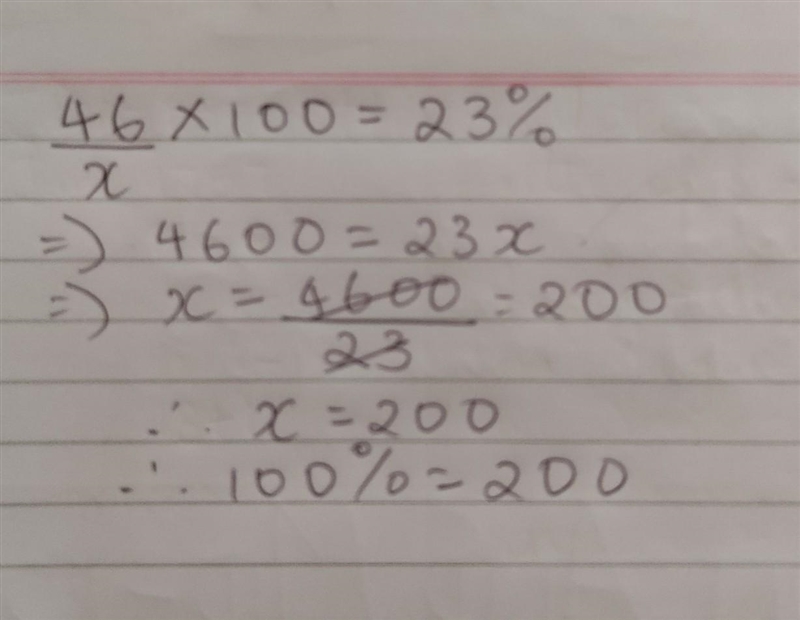 46/x × 100 = 23%
=) 4600 = 23x
=) x = 4600/23 = 200
∴ x = 200
∴ 100% = 200